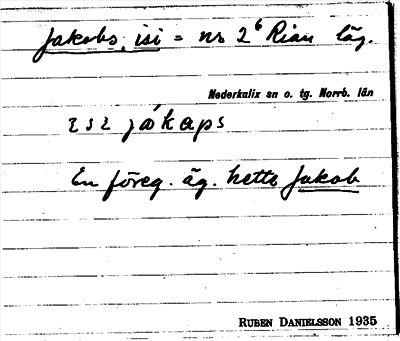 Jakobs, isi = nr 2⁶ Rian läg.
Nederkalix sn o. tg. Norrb. län
ɪsɪ jákaps
En föreg. äg. hette Jakob
RUBEN DANIELSSON 1935